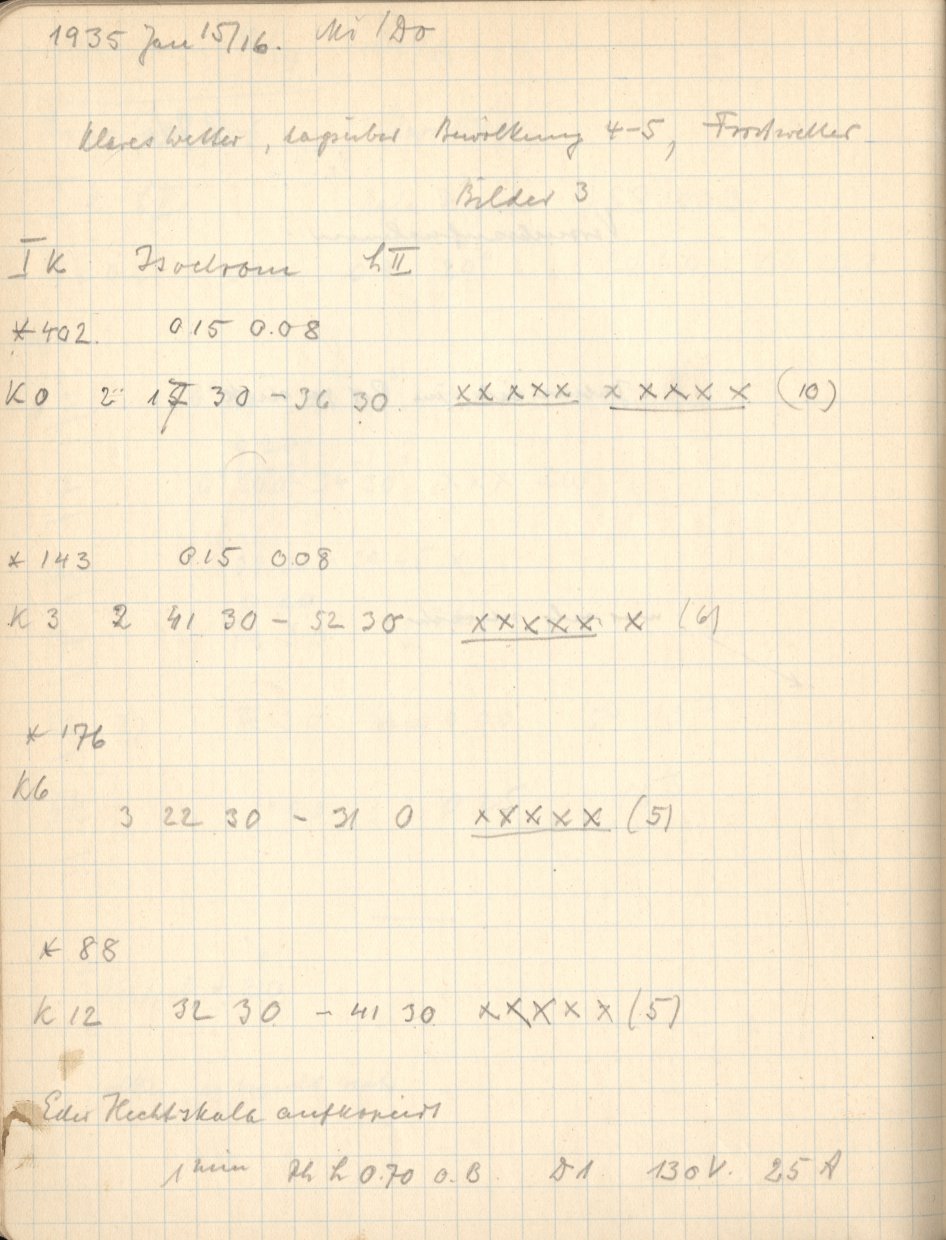 1935 Jan 15/16. Mi/Do
Klares Wetter, tagsüber Bewölkung 4-5, Frostwetter
Bilder 3
I K Isochrom h II
* 402. 0.15 0.08
K 0 2 17 30 - 36 30 x x x x x x x x x x (10)
* 143 0.15 0.08
K 3 2 41 30 - 52 30 x x x x x x (6)
* 176
K6
3 22 30 - 31 0 x x x x x (5)
* 88
K 12 32 30 - 41 30 x x x x x (5)
Eder Hechtskala aufkopiert
1 min h 0.70 o. B. D1 130 V. 25 A